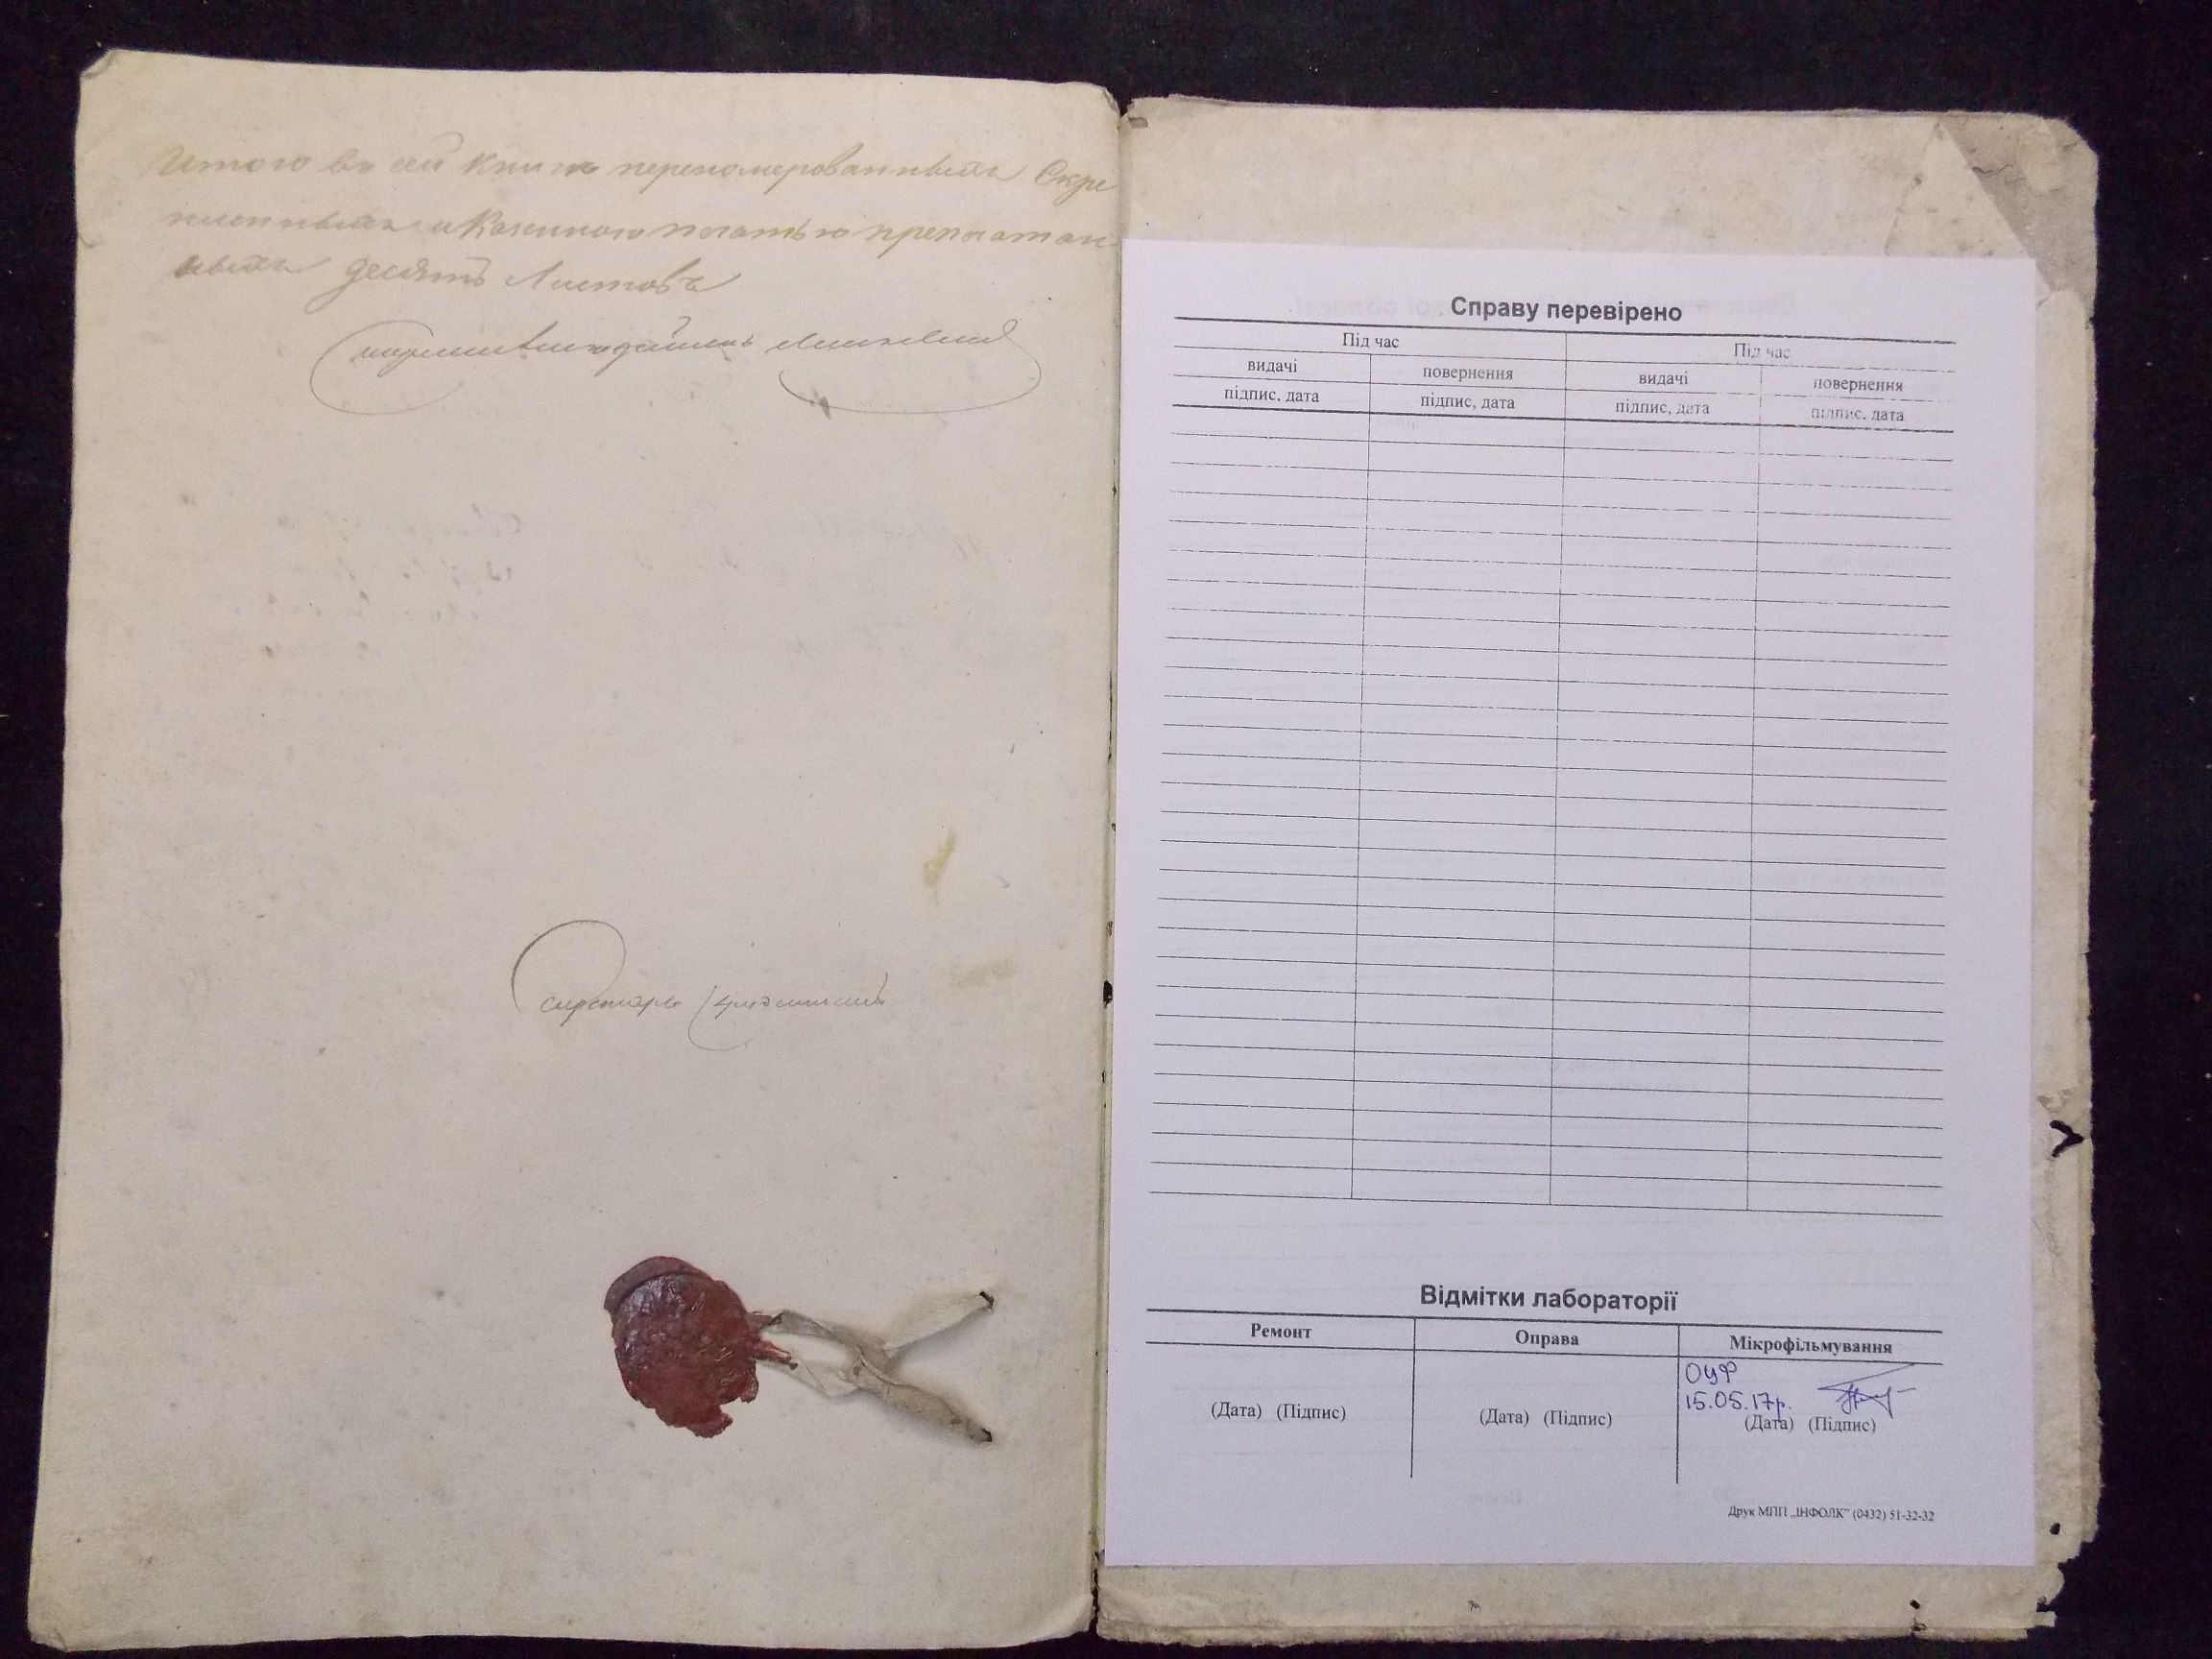 Итого въ сей книги перенумерованныхъ Скре
пленныхъ и Казенною печатью препечатан
ныхъ десять Листовъ
секретарь
Справу перевірено
Під час Під час
видачі повернення видачі повернення
підпис, дата підпис, дата підпис, дата підпис, дата
Відмітки лабораторії
Ремонт Оправа Мікрофільмування
ОЦФ
15.05.17р.
(Дата) (Підпис) (Дата) (Підпис) (Дата) (Підпис)
Друк МПП „ІНФОЛК" (0432) 51-32-32